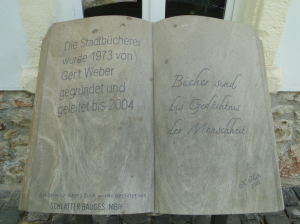 Die Stadtbücherei
wurde 1973 von
Gert Weber
gegründet und
geleitet bis 2004
SCHLATTER BAUGES. MBH
Bücher sind
das Gedächtnis
der Menschheit